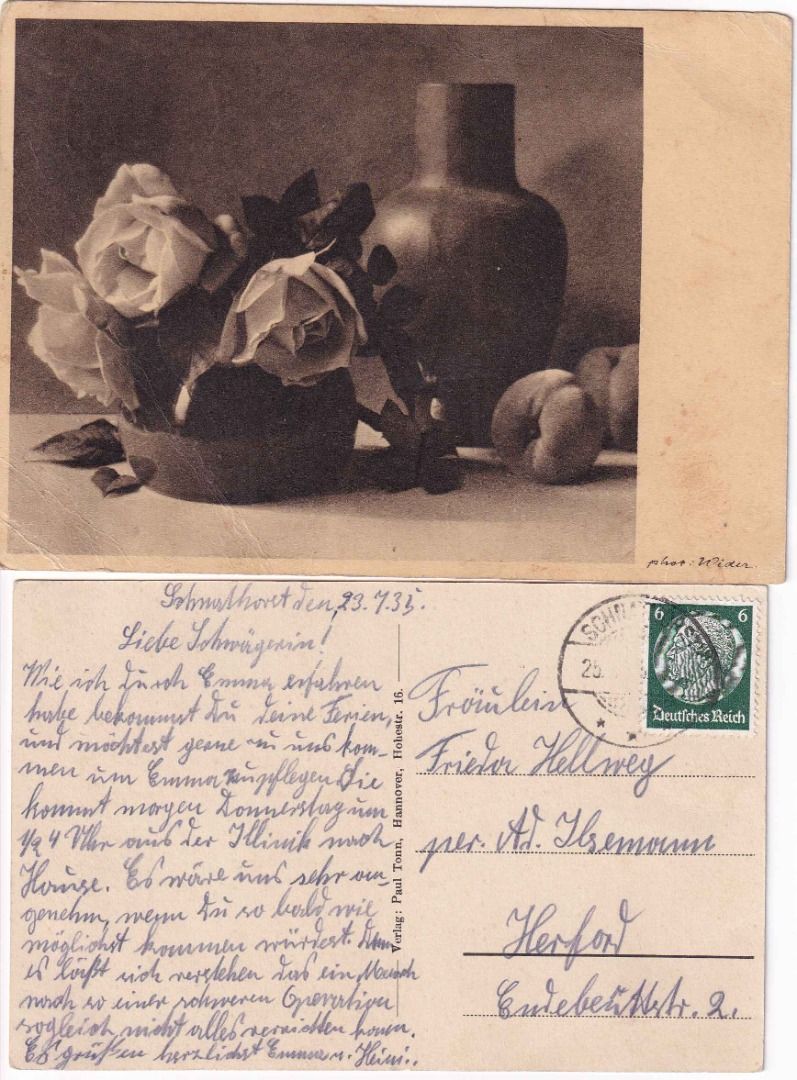 phot: Wider.
Schnathorst den, 23.7.35.
Liebe Schwägerin!
Wie ich durch Emma erfahren
habe bekommst Du deine Ferien,
und möchtest gerne zu uns kom-
men um Emma zu pflegen. Sie
kommt morgen Donnerstag um
1/2 4 Uhr aus der Klinik nach
Hause. Es wäre uns sehr an-
genehm, wenn Du so bald wie
möglichst kommen würdest. Denn
es läßt sich verstehen das ein Mensch
nach so einer schweren Operation
sogleich nicht alles verrichten kann.
Es grüßen herzlichst Emma u. Heini.
Verlag: Paul Tonn, Hannover, Hohestr. 16.
SCHNA
25.
6 6
Deutsches Reich
Fräulein
Frieda Hellweg
per. Ad. Ilsemann
Herford
Endebuttstr. 2.